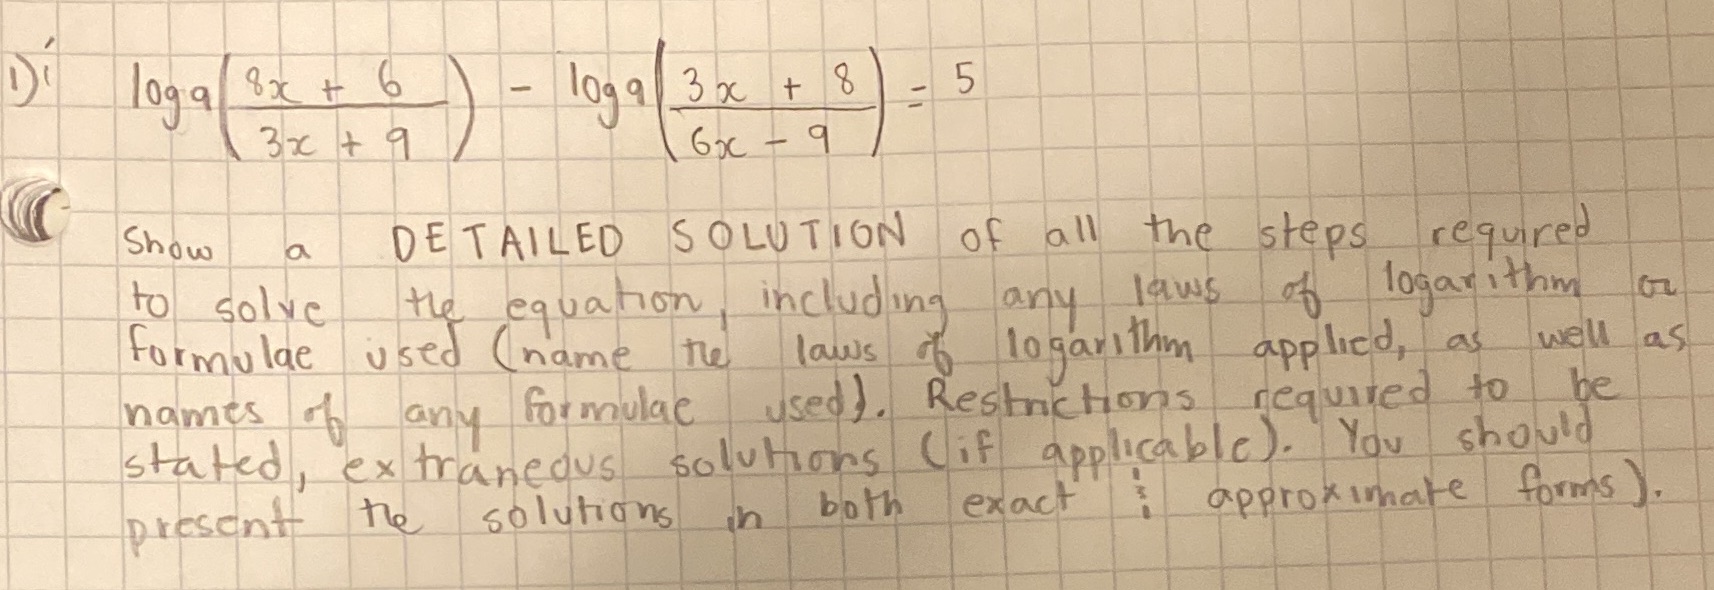 1)i log9((8x + 6)/(3x + 9)) - log9((3x + 8)/(6x - 9)) = 5
Show a DETAILED SOLUTION of all the steps required
to solve the equation, including any laws of logarithm or
formulae used (name the laws of logarithm applied, as well as
names of any formulae used). Restrictions required to be
stated, extraneous solutions (if applicable). You should
present the solutions in both exact & approximate forms).